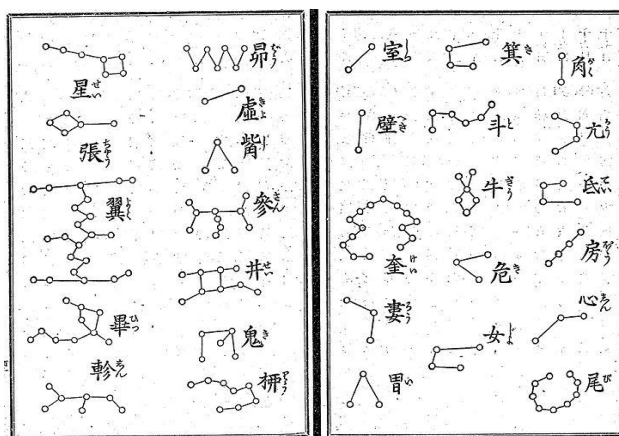 角かく
亢
氐てい
房ばう
心しん
尾び
箕き
斗と
牛ぎう
危き
女ぢよ
室しつ
壁へき
奎けい
婁ろう
胃い
昴ばう
虛きよ
觜し
參さん
井せい
鬼き
柳
星せい
張ちやう
翼よく
畢ひつ
軫しん